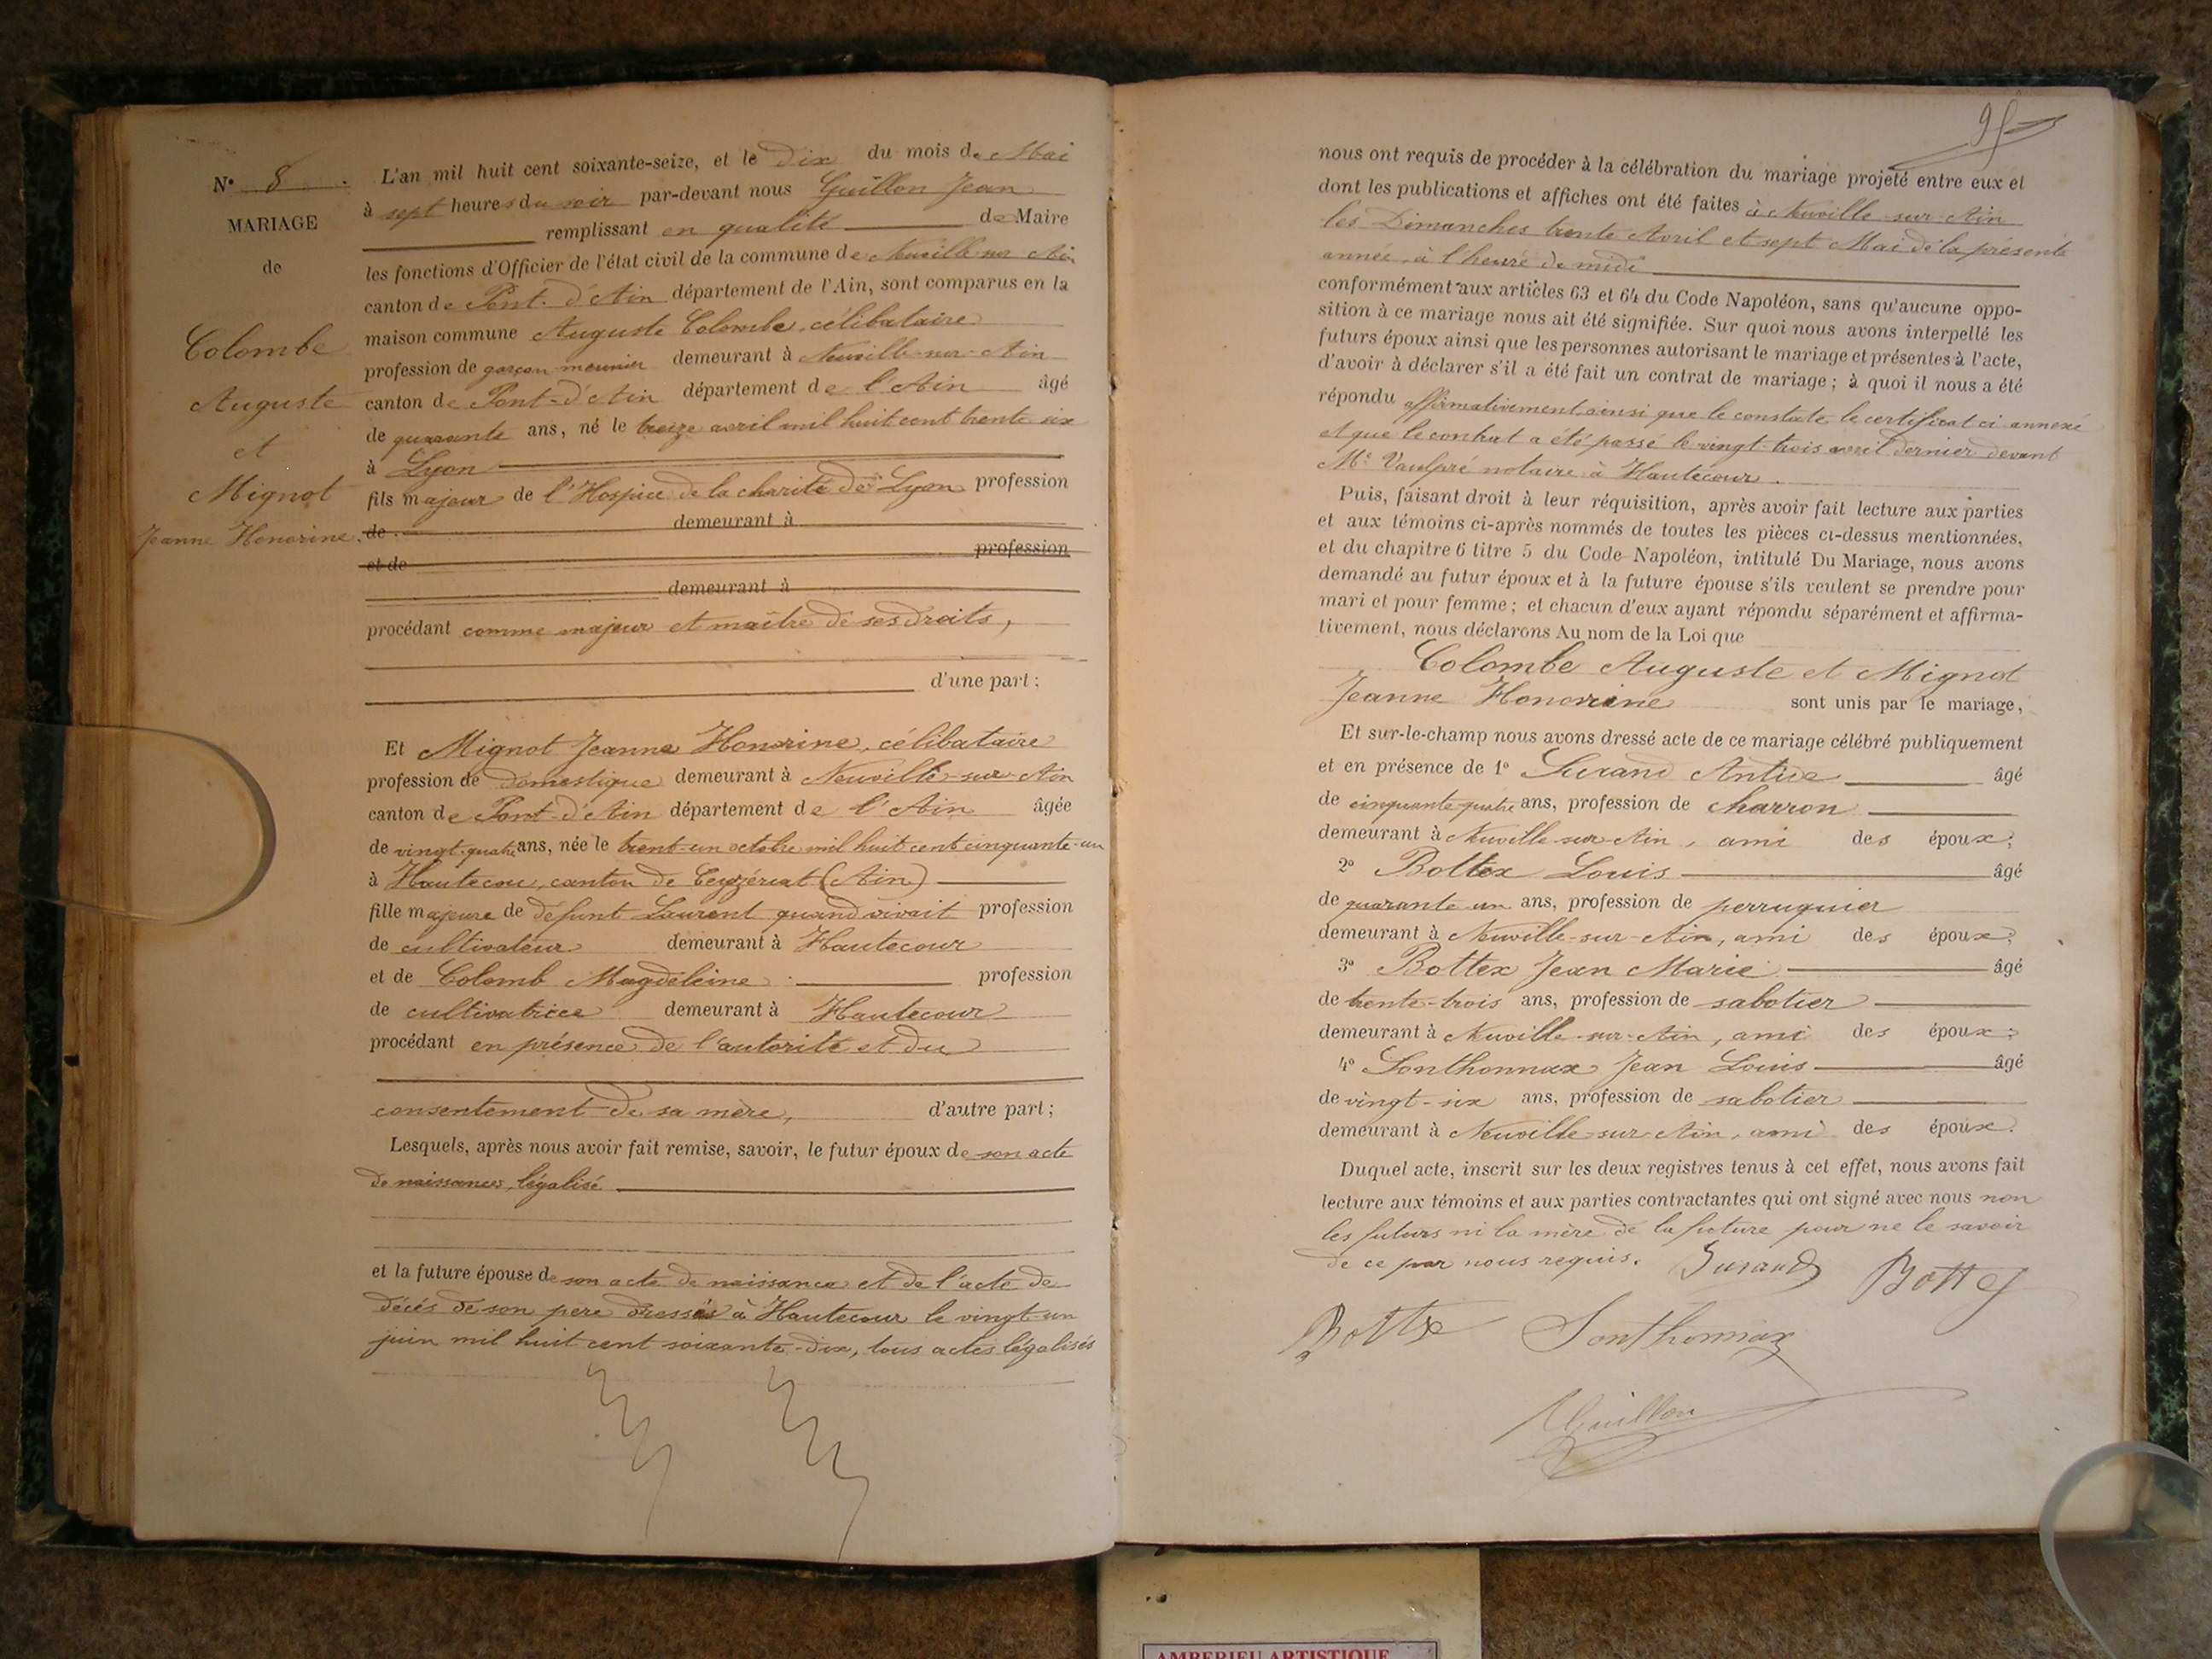 N° 8.
MARIAGE
de
Colombe
Auguste
et
Mignot
Jeanne Honorine.
L'an mil huit cent soixante-seize, et le dix du mois de Mai
à sept heures du soir par-devant nous Guillon Jean
remplissant en qualité de Maire
les fonctions d'Officier de l'état civil de la commune de Neuville sur Ain
canton de Pont-d'Ain département de l'Ain, sont comparus en la
maison commune Auguste Colombe, célibataire
profession de garçon meunier demeurant à Neuville-sur-Ain
canton de Pont-d'Ain département de l'Ain âgé
de quarante ans, né le treize avril mil huit cent trente six
à Lyon
fils majeur de l'Hospice de la charité de Lyon profession
de demeurant à
et de profession
demeurant à
procédant comme majeur et maître de ses droits,
d'une part;
Et Mignot Jeanne Honorine, célibataire
profession de domestique demeurant à Neuville-sur-Ain
canton de Pont-d'Ain département de l'Ain âgée
de vingt-quatre ans, née le trent-un octobre mil huit cent cinquante-un
à Hautecou, canton de Ceyzériat (Ain)
fille majeure de défunt Laurent quand vivait profession
de cultivateur demeurant à Hautecour
et de Colomb Magdeleine profession
de cultivatrice demeurant à Hautecour
procédant en présence de l'autorité et du
consentement de sa mère, d'autre part;
Lesquels, après nous avoir fait remise, savoir, le futur époux de son acte
de naissance, légalisé
et la future épouse de son acte de naissance et de l'acte de
décès de son père dressés à Hautecour le vingt-un
juin mil huit cent soixante-dix, tous actes légalisés
95
nous ont requis de procéder à la célébration du mariage projeté entre eux et
dont les publications et affiches ont été faites à Neuville-sur-Ain
les Dimanches trente Avril et sept Mai de la présente
année, à l'heure de midi
conformément aux articles 63 et 64 du Code Napoléon, sans qu'aucune oppo-
sition à ce mariage nous ait été signifiée. Sur quoi nous avons interpellé les
futurs époux ainsi que les personnes autorisant le mariage et présentes à l'acte,
d'avoir à déclarer s'il a été fait un contrat de mariage; à quoi il nous a été
répondu affirmativement ainsi que le constate le certificat ci annexé
et que le contrat a été passé le vingt-trois avril dernier devant
Me Vaulpré notaire à Hautecour.
Puis, faisant droit à leur réquisition, après avoir fait lecture aux parties
et aux témoins ci-après nommés de toutes les pièces ci-dessus mentionnées,
et du chapitre 6 titre 5 du Code Napoléon, intitulé Du Mariage, nous avons
demandé au futur époux et à la future épouse s'ils veulent se prendre pour
mari et pour femme; et chacun d'eux ayant répondu séparément et affirma-
tivement, nous déclarons Au nom de la Loi que
Colombe Auguste et Mignot
Jeanne Honorine sont unis par le mariage,
Et sur-le-champ nous avons dressé acte de ce mariage célébré publiquement
et en présence de 1° Surand âgé
de cinquante-quatre ans, profession de charron
demeurant à Neuville-sur-Ain, ami des époux;
2° Bottex Louis âgé
de quarante un ans, profession de perruquier
demeurant à Neuville-sur-Ain, ami des époux;
3° Bottex Jean Marie âgé
de trente-trois ans, profession de sabotier
demeurant à Neuville-sur-Ain, ami des époux;
4° Sonthonnax Jean Louis âgé
de vingt-six ans, profession de sabotier
demeurant à Neuville-sur-Ain, ami des époux.
Duquel acte, inscrit sur les deux registres tenus à cet effet, nous avons fait
lecture aux témoins et aux parties contractantes qui ont signé avec nous non
les futurs ni la mère de la future pour ne le savoir
de ce par nous requis. Surand Bottex
Bottex Sonthonnax
Guillon
AMBERIEU ARTISTIQUE